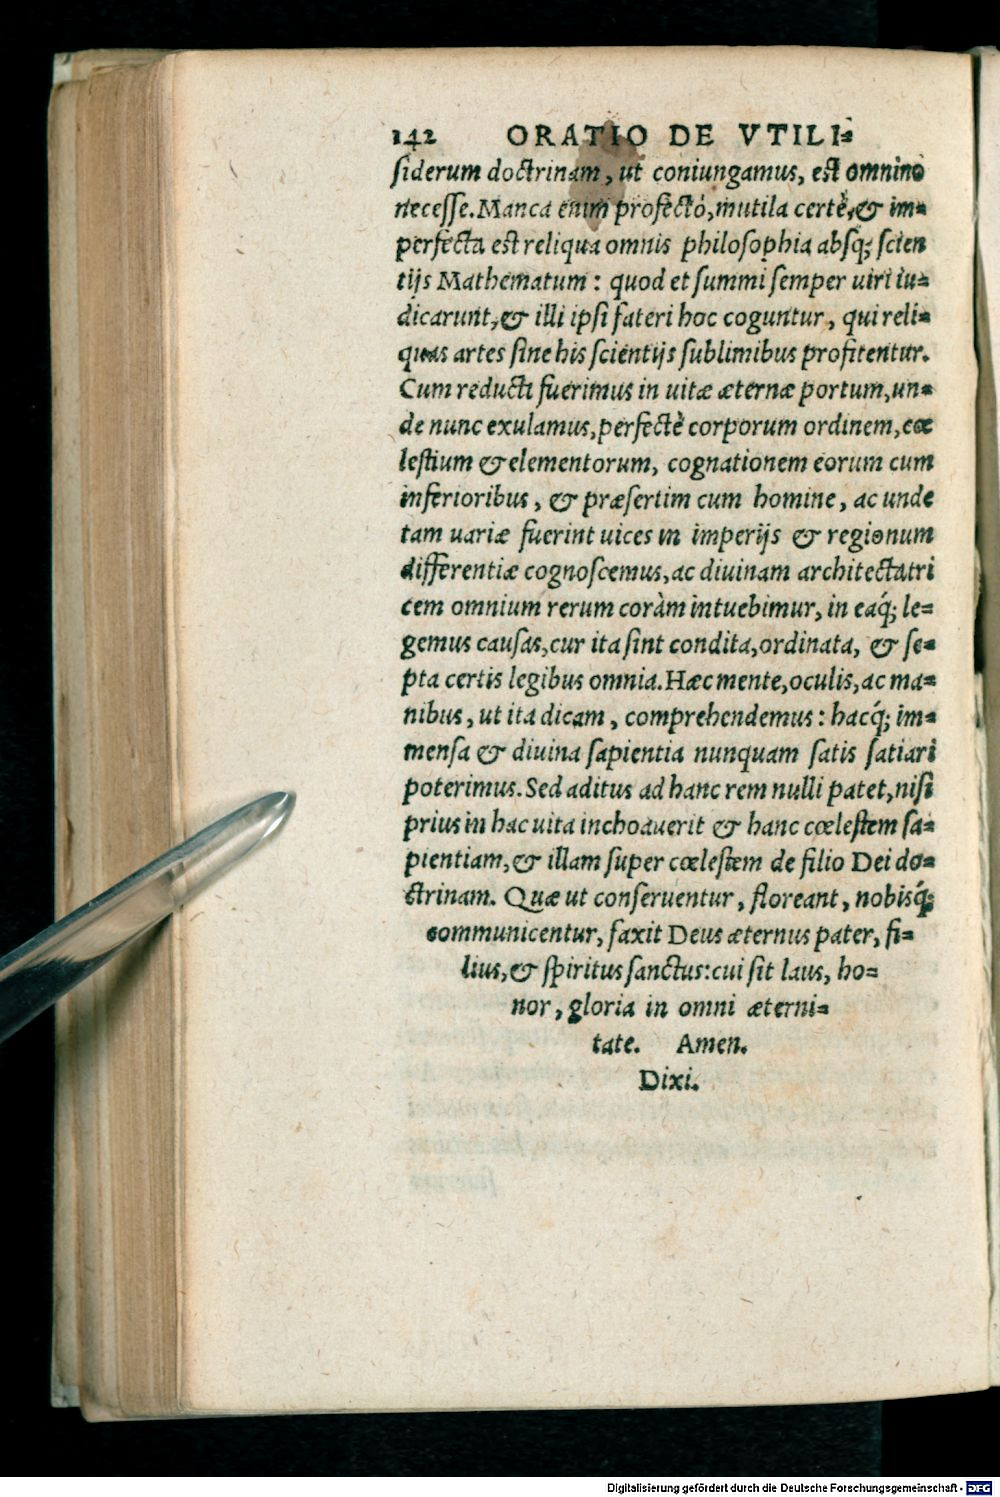 142 ORATIO DE VTILI-
siderum doctrinam, ut coniungamus, est omninò
necesse. Manca enim profectò, mutila certè, & im-
perfecta est reliqua omnis philosophia absq; scien
tijs Mathematum: quod et summi semper uiri iu-
dicarunt, & illi ipsi fateri hoc coguntur, qui reli-
quas artes sine his scientijs sublimibus profitentur.
Cum reducti fuerimus in uitæ æternæ portum, un-
de nunc exulamus, perfectè corporum ordinem, cœ
lestium & elementorum, cognationem eorum cum
inferioribus, & præsertim cum homine, ac unde
tam uariæ fuerint uices in imperijs & regionum
differentiæ cognoscemus, ac diuinam architectatri
cem omnium rerum coràm intuebimur, in eaq́; le-
gemus causas, cur ita sint condita, ordinata, & se-
pta certis legibus omnia. Hæc mente, oculis, ac ma-
nibus, ut ita dicam, comprehendemus: hacq́; im-
mensa & diuina sapientia nunquam satis satiari
poterimus. Sed aditus ad hanc rem nulli patet, nisi
prius in hac uita inchoauerit & hanc cœlestem sa-
pientiam, & illam super cœlestem de filio Dei do-
ctrinam. Quæ ut conseruentur, floreant, nobisq́;
communicentur, faxit Deus æternus pater, fi-
lius, & spiritus sanctus: cui sit laus, ho-
nor, gloria in omni æterni-
tate. Amen.
Dixi.
Digitalisierung gefördert durch die Deutsche Forschungsgemeinschaft - DFG